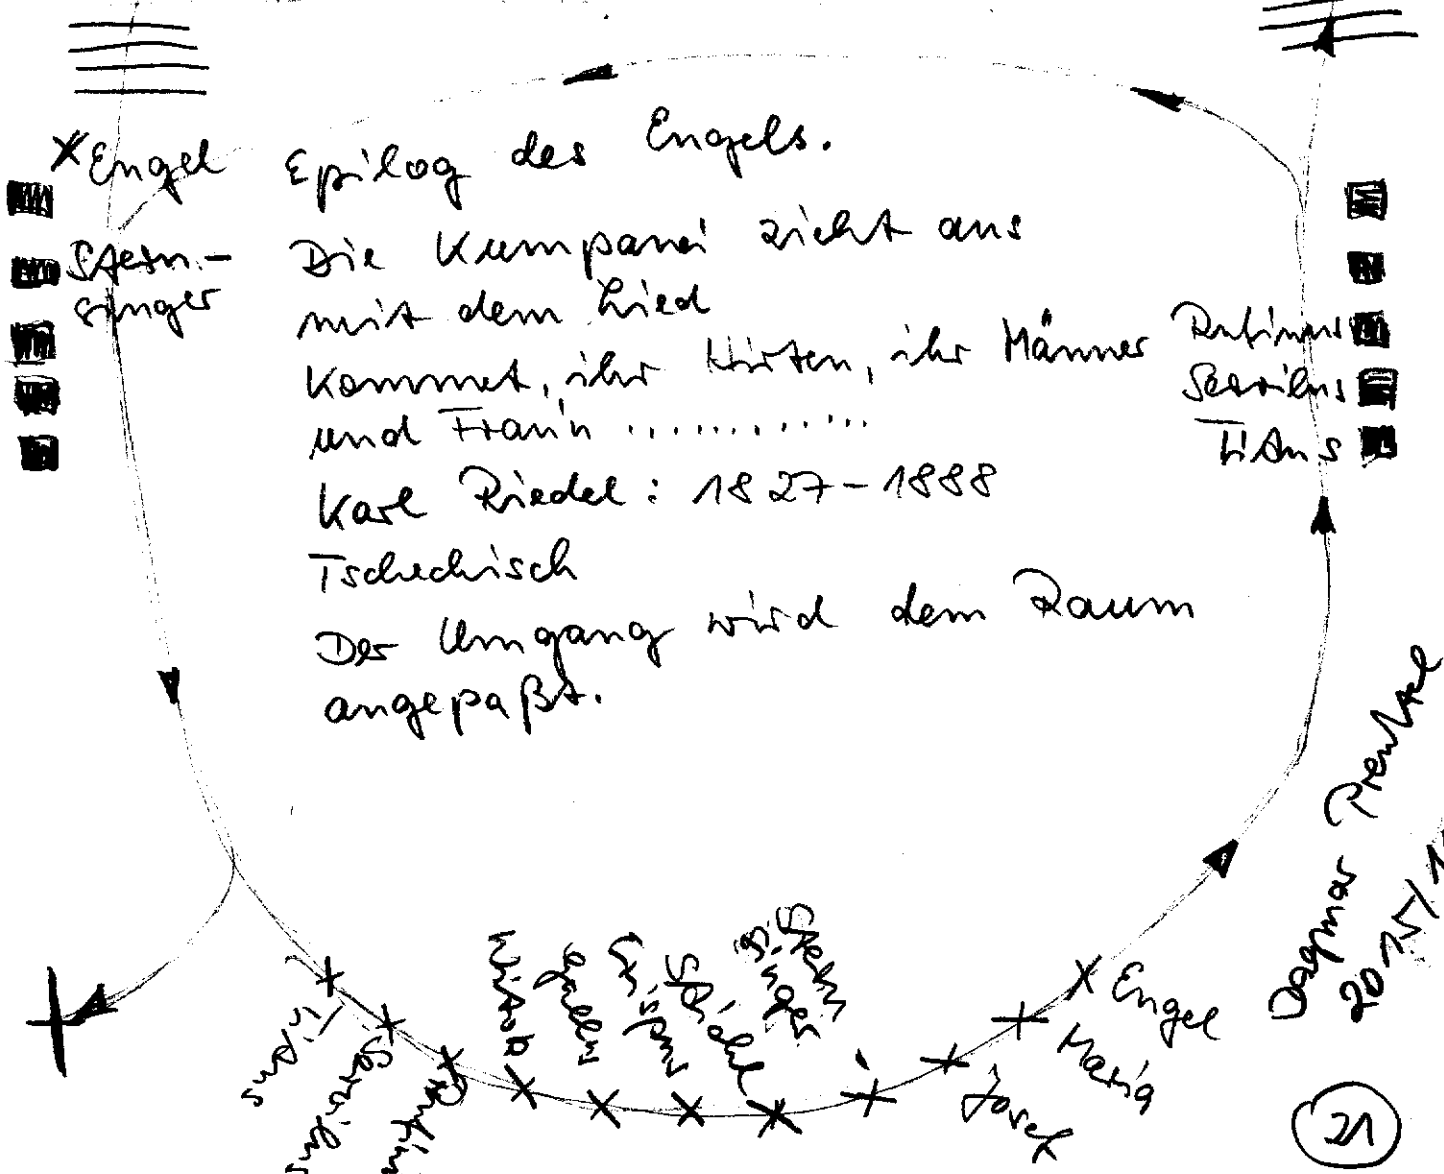 Engel
Epilog des Engels.
Stern-
singer
Die Kumpanei zieht aus
mit dem Lied
Kommet, ihr Hirten, ihr Männer
und Frau'n ............
Karl Riedel: 1827-1888
Tschechisch
Der Umgang wird dem Raum
angepaßt.
Rufinus
Servilus
Titus
Titus
Servilus
Witob
Gallus
Crispus
Stichl
Stern
singer
Josef
Maria
Engel
Dagmar
2015/1
21